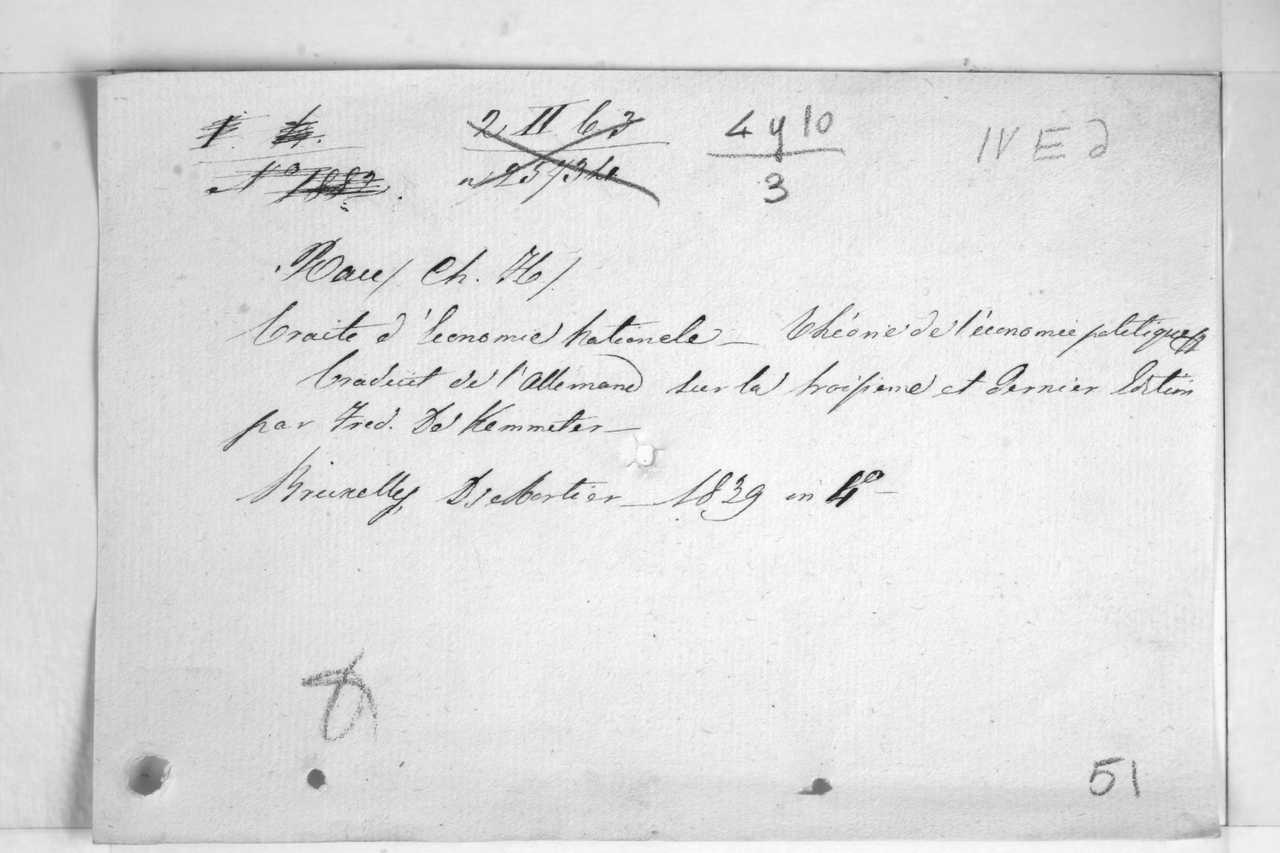 2 II 63
4 y 10
IV E d
3
Rau/ Ch. H/
Traite d'Economie Nationele — Théorie de l'économie politique
Traduit de l'Allemand sur la troisieme et dernier Edition
par Fred. De Kemmeter —
Bruxelles, De Mortier — 1839 in 4º —
51